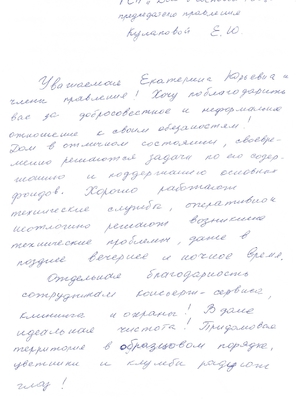 председателю правления
Кулаковой Е. Ю.
Уважаемая Екатерина Юрьевна и
члены правления! Хочу поблагодарить
вас за добросовестное и неформальное
отношение к своим обязанностям!
Дом в отличном состоянии, своевре-
менно решаются задачи по его содер-
жанию и поддержанию основных
фондов. Хорошо работают
технические службы, оперативно и
неотложно решают возникшие
технические проблемы, даже в
позднее вечернее и ночное время.
Отдельная благодарность
сотрудникам консьерж-сервиса,
клининга и охраны! В доме
идеальная чистота! Придомовая
территория в образцовом порядке,
цветники и клумбы радуют
глаз!